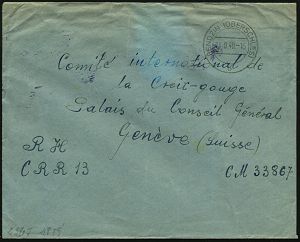 (OBERSCHLES)
Comité international de
la Croix-gouge
Palais du Conseil Général
Genève (Suisse)
R H
CRR 13
CM 33867